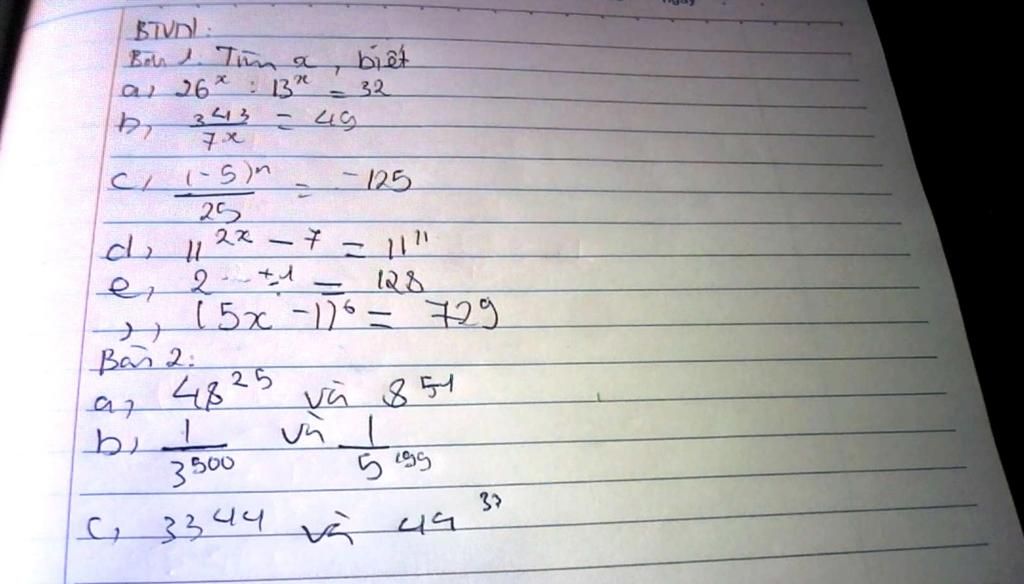 BTVN:
Bài 1. Tìm x, biết
a, 26^x : 13^x = 32
b, 343/7^x = 49
c, (-5)^n/25 = -125
d, 11^2x - 7 = 11^11
e, 2 +1 = 128
(5x - 1)^6 = 729
Bài 2:
a, 48^25 và 8^51
b, 1/3^500 và 1/5^199
c, 33^44 và 44^33